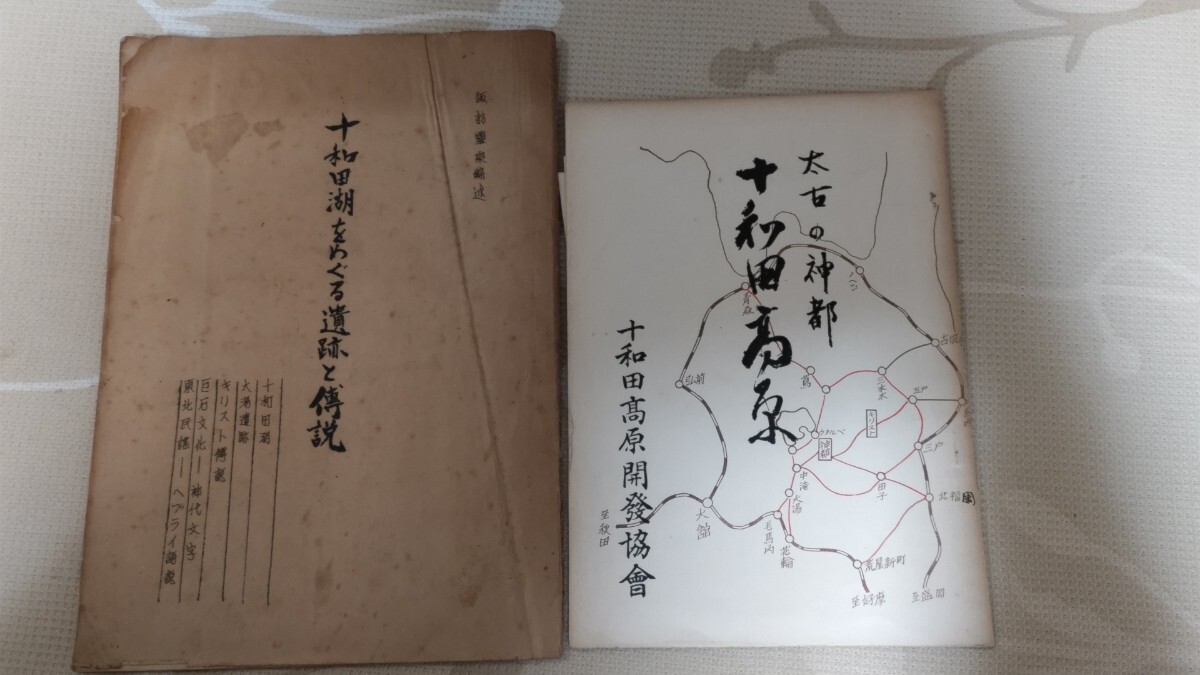 十和田湖をめぐる遺跡と傳説
十和田湖
大湯遺跡
キリスト傳説
巨石文化―神代文字
東北民謡―ヘブライ語説
太古の神都
十和田高原
十和田高原開發協會
青森
弘前
大館
至秋田
毛馬内
花輪
大湯
中滝
神都
キリスト
蔦
三本木
五戸
三戸
田子
北福岡
荒屋新町
至好摩
至盛岡